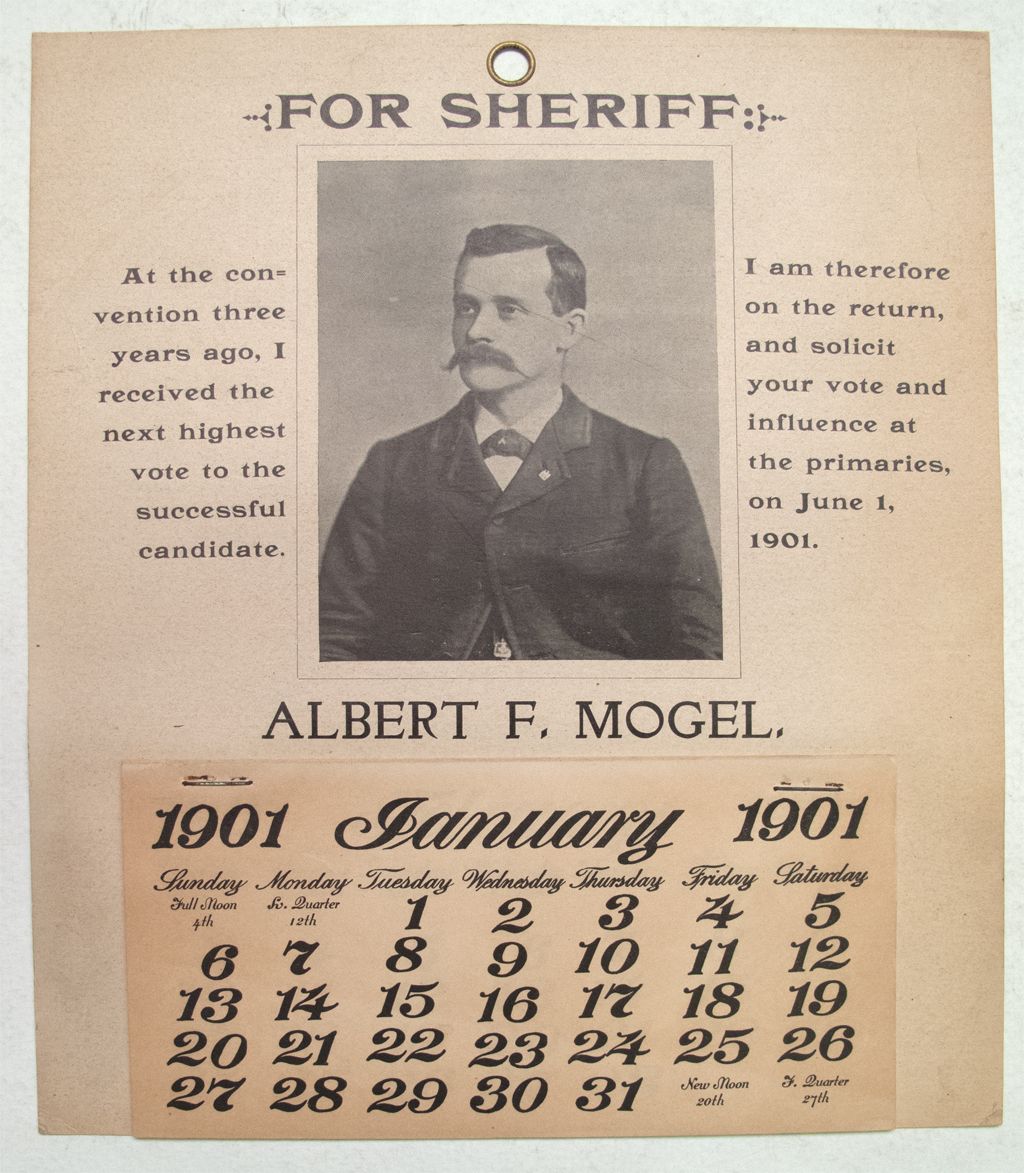 FOR SHERIFF:
At the con=
vention three
years ago, I
received the
next highest
vote to the
successful
candidate.
I am therefore
on the return,
and solicit
your vote and
influence at
the primaries,
on June 1,
1901.
ALBERT F. MOGEL.
1901 January 1901
Sunday Monday Tuesday Wednesday Thursday Friday Saturday
Full Moon 4th L. Quarter 12th 1 2 3 4 5
6 7 8 9 10 11 12
13 14 15 16 17 18 19
20 21 22 23 24 25 26
27 28 29 30 31 New Moon 20th F. Quarter 27th